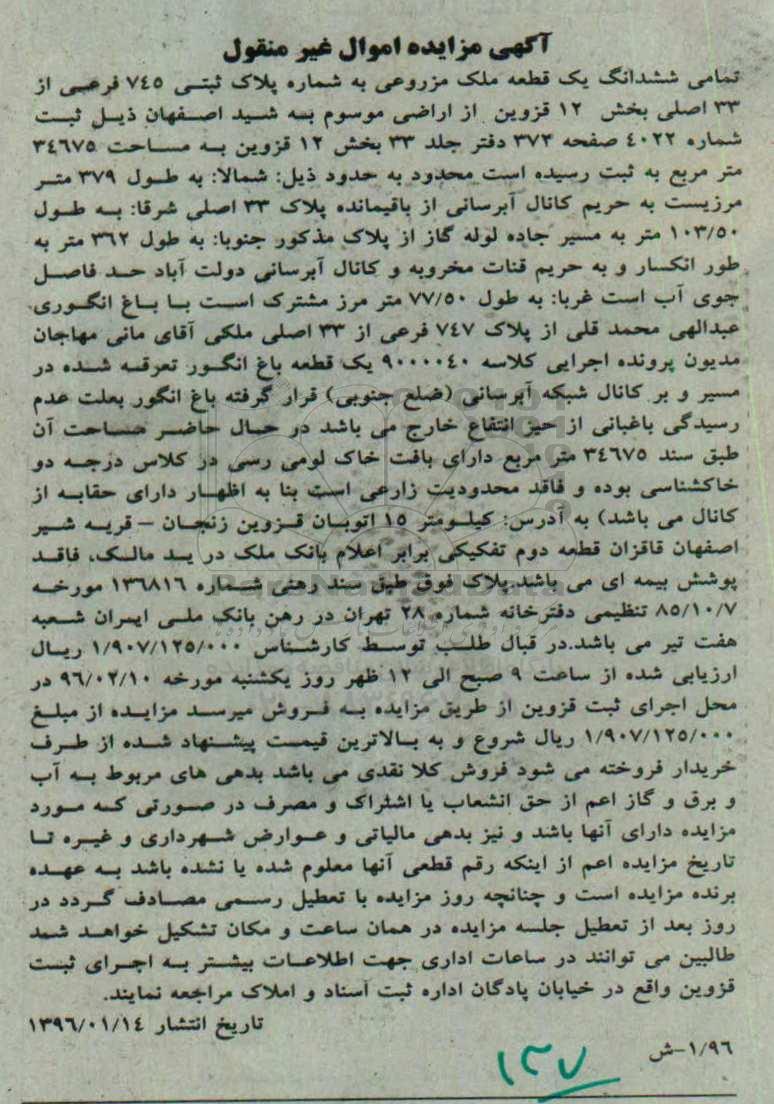 آگهی مزایده اموال غیر منقول
تمامی ششدانگ یک قطعه ملک مزروعی به شماره پلاک ثبتی ۷۴۵ فرعی از
۳۳ اصلی بخش ۱۲ قزوین از اراضی موسوم به شید اصفهان ذیل ثبت
شماره ۴۰۲۲ صفحه ۳۷۳ دفتر جلد ۳۳ بخش ۱۲ قزوین به مساحت ۳۴۶۷۵
متر مربع به ثبت رسیده است محدود به حدود ذیل: شمالا: به طول ۳۷۹ متر
مرزیست به حریم کانال آبرسانی از باقیمانده پلاک ۳۳ اصلی شرقا: به طول
۱۰۳/۵۰ متر به مسیر جاده لوله گاز از پلاک مذکور جنوبا: به طول ۳۶۲ متر به
طور انکسار و به حریم قنات مخروبه و کانال آبرسانی دولت آباد حد فاصل
جوی آب است غربا: به طول ۷۷/۵۰ متر مرز مشترک است با باغ انگوری
عبدالهی محمد قلی از پلاک ۷۴۷ فرعی از ۳۳ اصلی ملکی آقای مانی مهاجان
مدیون پرونده اجرایی کلاسه ۹۰۰۰۰۴۰ یک قطعه باغ انگور تعرفه شده در
مسیر و بر کانال شبکه آبرسانی (ضلع جنوبی) قرار گرفته باغ انگور بعلت عدم
رسیدگی باغبانی از حیز انتفاع خارج می باشد در حال حاضر مساحت آن
طبق سند ۳۴۶۷۵ متر مربع دارای بافت خاک لومی رسی در کلاس درجه دو
خاکشناسی بوده و فاقد محدودیت زارعی است بنا به اظهار دارای حقابه از
کانال می باشد) به آدرس: کیلومتر ۱۵ اتوبان قزوین زنجان – قریه شیر
اصفهان قاقزان قطعه دوم تفکیکی برابر اعلام بانک ملک در ید مالک، فاقد
پوشش بیمه ای می باشد.پلاک فوق طبق سند رهنی شماره ۱۳۶۸۱۶ مورخه
۸۵/۱۰/۷ تنظیمی دفترخانه شماره ۲۸ تهران در رهن بانک ملی ایران شعبه
هفت تیر می باشد.در قبال طلب توسط کارشناس ۱/۹۰۷/۱۲۵/۰۰۰ ریال
ارزیابی شده از ساعت ۹ صبح الی ۱۲ ظهر روز یکشنبه مورخه ۹۶/۰۲/۱۰ در
محل اجرای ثبت قزوین از طریق مزایده به فروش میرسد مزایده از مبلغ
۱/۹۰۷/۱۲۵/۰۰۰ ریال شروع و به بالاترین قیمت پیشنهاد شده از طرف
خریدار فروخته می شود فروش کلا نقدی می باشد بدهی های مربوط به آب
و برق و گاز اعم از حق انشعاب یا اشتراک و مصرف در صورتی که مورد
مزایده دارای آنها باشد و نیز بدهی مالیاتی و عوارض شهرداری و غیره تا
تاریخ مزایده اعم از اینکه رقم قطعی آنها معلوم شده یا نشده باشد به عهده
برنده مزایده است و چنانچه روز مزایده با تعطیل رسمی مصادف گردد در
روز بعد از تعطیل جلسه مزایده در همان ساعت و مکان تشکیل خواهد شد
طالبین می توانند در ساعات اداری جهت اطلاعات بیشتر به اجرای ثبت
قزوین واقع در خیابان پادگان اداره ثبت اسناد و املاک مراجعه نمایند.
تاریخ انتشار ۱۳۹۶/۰۱/۱۴
۱/۹۶-ش
۱۳۷